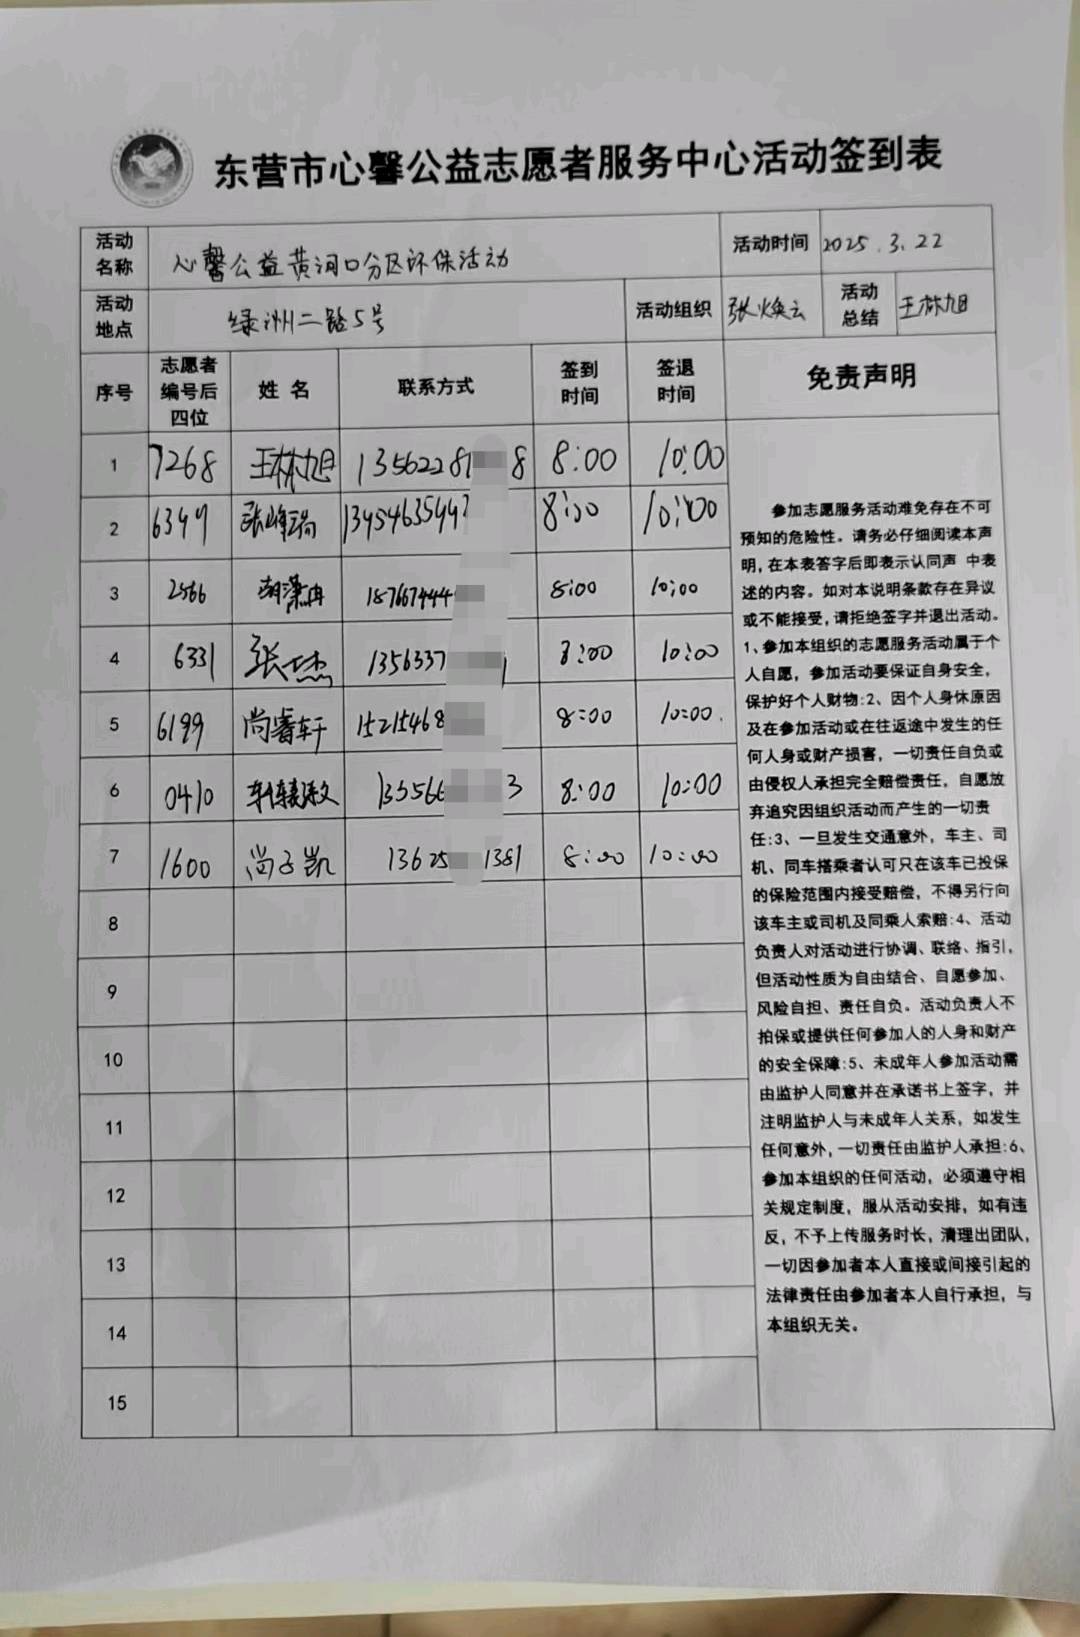 东营市心馨公益志愿者服务中心活动签到表
活动名称 心馨公益黄河口分区环保活动 活动时间 2025.3.22
活动地点 绿洲二路5号 活动组织 张焕云 活动总结 王林旭
序号 志愿者编号后四位 姓名 联系方式 签到时间 签退时间 免责声明
1 7268 王林旭 13562281 8 8:00 10:00
2 6349 张峰瑞 1345463544 8:00 10:00
3 2566 胡潇冉 187667444 8:00 10:00
4 6331 张一杰 1356337 8:00 10:00
5 6199 尚睿轩 15215468 8:00 10:00.
6 0410 135566 3 8:00 10:00
7 1600 尚子凯 13625 1381 8:00 10:00
8
9
10
11
12
13
14
15
参加志愿服务活动难免存在不可
预知的危险性。请务必仔细阅读本声
明,在本表签字后即表示认同声 中表
述的内容。如对本说明条款存在异议
或不能接受,请拒绝签字并退出活动。
1、参加本组织的志愿服务活动属于个
人自愿，参加活动要保证自身安全，
保护好个人财物:2、因个人身休原因
及在参加活动或在往返途中发生的任
何人身或财产损害，一切责任自负或
由侵权人承担完全赔偿责任，自愿放
弃追究因组织活动而产生的一切责
任:3、一旦发生交通意外，车主、司
机、同车搭乘者认可只在该车已投保
的保险范围内接受赔偿，不得另行向
该车主或司机及同乘人索赔:4、活动
负责人对活动进行协调、联络、指引，
但活动性质为自由结合、自愿参加、
风险自担、责任自负。活动负责人不
拍保或提供任何参加人的人身和财产
的安全保障:5、未成年人参加活动需
由监护人同意并在承诺书上签字，并
注明监护人与未成年人关系，如发生
任何意外,一切责任由监护人承担:6、
参加本组织的任何活动，必须遵守相
关规定制度，服从活动安排，如有违
反，不予上传服务时长，清理出团队，
一切因参加者本人直接或间接引起的
法律责任由参加者本人自行承担，与
本组织无关。